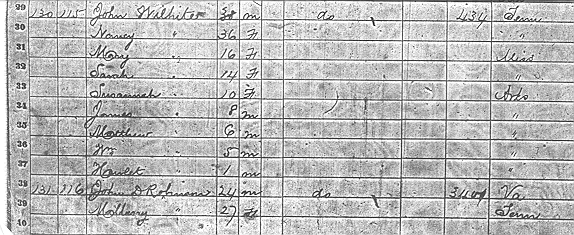 29
130 115 John Wilhiter m do 434 Tenn
30 Nancy " 36 F "
31 Mary " 16 F Miss
32 Sarah " 14 F "
33 Susannah " 10 F Aks
34 James " 8 m "
35 Matthew " 6 m "
36 Wm " 5 m "
37 " 1 m "
38 131 116 John D Robinson 24 m do Va
39 " 27 F Tenn
40